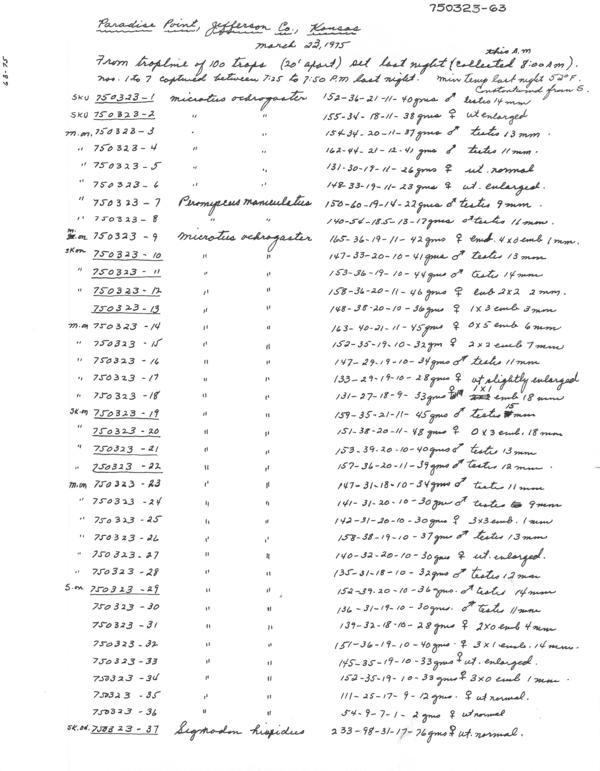 750323-63
63-75
Paradise Point, Jefferson Co., Kansas
March 23, 1975
this A.M
From trapline of 100 traps (20' apart) set last night (collected 8:00 AM).
nos. 1 to 7 captured between 7:25 to 7:50 P.M last night. min temp last night 52°F.
Constant wind from S.
SKU 750323-1 microtus ochrogaster 152-36-21-11-40gms ♂ testes 14mm
SKU 750323-2 " " 155-34-18-11-38gms ♀ ut enlarged
m.on 750323-3 " " 154-34-20-11-37gms ♂ testes 13mm.
" 750323-4 " " 162-44-21-12-41 gms ♂ testes 11mm.
" 750323-5 " " 131-30-17-11-26gms ♀ ut. normal
" 750323-6 " " 148-33-19-11-23gms ♀ ut. enlarged.
" 750323-7 Peromyscus maniculatus 150-60-19-14-22gms ♂ testes 9mm.
" 750323-8 " " 140-54-18.5-13-17gms ♂ testes 11mm.
m.on 750323-9 microtus ochrogaster 165-36-19-11-42gms ♀ emb. 4x0 emb 1mm.
SK on 750323-10 " " 147-33-20-10-41gms ♂ testes 13mm
" 750323-11 " " 153-36-19-10-44gms ♂ testes 14mm
" 750323-12 " " 158-36-20-11-46gms ♀ emb 2x2 2mm.
750323-13 " " 148-38-20-10-36gms ♀ 1x3 emb 3mm
m.on 750323-14 " " 163-40-21-11-45gms ♀ 0x5 emb 6mm
" 750323-15 " " 152-35-19-10-32gm ♀ 2x2 emb 7mm
" 750323-16 " " 147-29-19-10-34gms ♂ testes 11mm
" 750323-17 " " 133-29-19-10-28gms ♀ ut slightly enlarged
" 750323-18 " " 131-27-18-9-33gms ♀ 1x1 emb 18mm
SK.on 750323-19 " " 159-35-21-11-45gms ♂ testes 15 mm
" 750323-20 " " 151-38-20-11-48gms ♀ 0x3 emb. 18mm
" 750323-21 " " 153-39-20-10-40gms ♂ testes 13mm
" 750323-22 " " 157-36-20-11-39gms ♂ testes 12mm.
m.on 750323-23 " " 147-31-18-10-34gms ♂ testes 11mm
" 750323-24 " " 141-31-20-10-30gms ♂ testes 9mm
" 750323-25 " " 142-31-20-10-30gms ♀ 3x3 emb. 1mm
" 750323-26 " " 158-38-19-10-37gms ♂ testes 13mm
" 750323-27 " " 140-32-20-10-30gms ♀ ut. enlarged.
" 750323-28 " " 135-31-18-10-32gms ♂ testes 12mm
S.on 750323-29 " " 152-39-20-10-36gms. ♂ testes 14mm
750323-30 " " 136-31-19-10-30gms. ♂ testes 11mm
750323-31 " " 139-32-18-10-28gms ♀ 2x0 emb 4mm
750323-32 " " 151-36-19-10-40gms. ♀ 3x1 emb. 14mm.
750323-33 " " 145-35-19-10-33gms ♀ ut. enlarged.
750323-34 " " 152-35-19-10-33gms ♀ 3x0 emb 1mm.
750323-35 " " 111-25-17-9-12gms. ♀ ut normal.
750323-36 " " 54-9-7-1-2gms ♀ ut normal
SK.od. 750323-37 Sigmodon hispidus 233-98-31-17-76gms ♀ ut. normal.